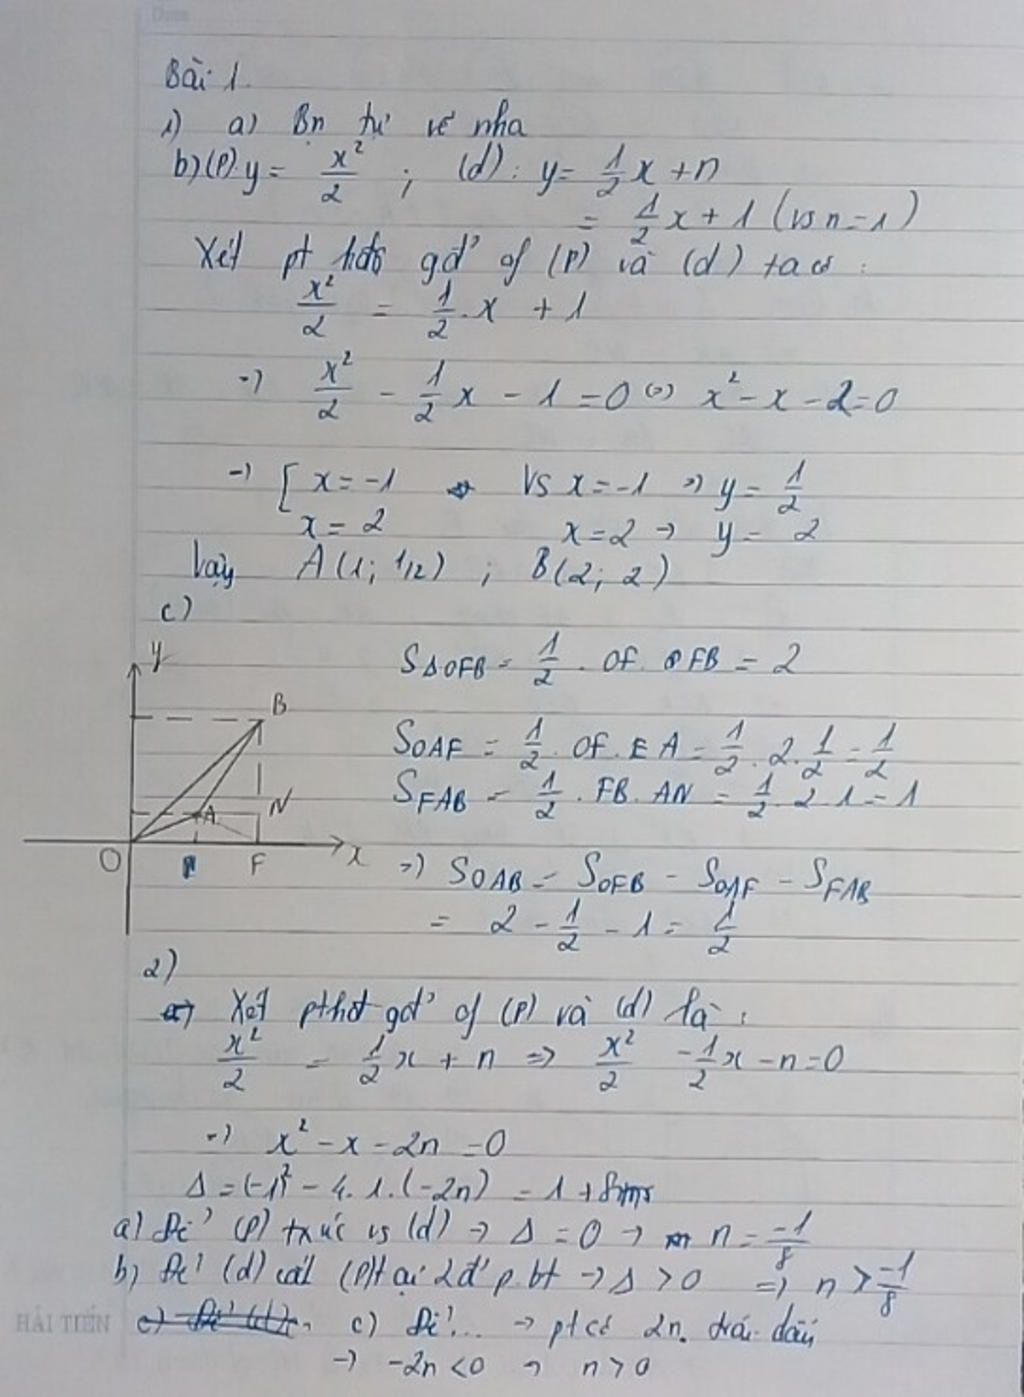 Bài 1.
1) a) Bn tự vẽ nha
b) (P): y = x²/2 ; (d): y = 1/2 x + n
= 1/2 x + 1 (vs n = 1)
Xét pt hđộ gđ' of (P) và (d) ta có :
x²/2 = 1/2 . x + 1
=> x²/2 - 1/2 x - 1 = 0 <=> x² - x - 2 = 0
=> [ x = -1 Vs x = -1 => y = 1/2
x = 2 x = 2 → y = 2
Vậy A(1; 1/2) ; B(2; 2)
c)
y
B
N
A
O F x
S∆OFB = 1/2 . OF . FB = 2
SOAF = 1/2 . OF . EA = 1/2 . 2 . 1/2 = 1/2
SFAB = 1/2 . FB . AN = 1/2 . 2 . 1 = 1
=> SOAB = SOFB - SOAF - SFAB
= 2 - 1/2 - 1 = 1/2
2)
Xét pthđ gđ' of (P) và (d) là :
x²/2 = 1/2 x + n => x²/2 - 1/2 x - n = 0
=> x² - x - 2n = 0
∆ = (-1)² - 4.1.(-2n) = 1 + 8n
a) Để (P) txúc vs (d) → ∆ = 0 → n = -1/8
b) Để (d) cắt (P) tại 2đ' p.bt → ∆ > 0 => n > -1/8
HẢI TIẾN
c) Để... → pt có 2n. trái dấu
→ -2n < 0 → n > 0